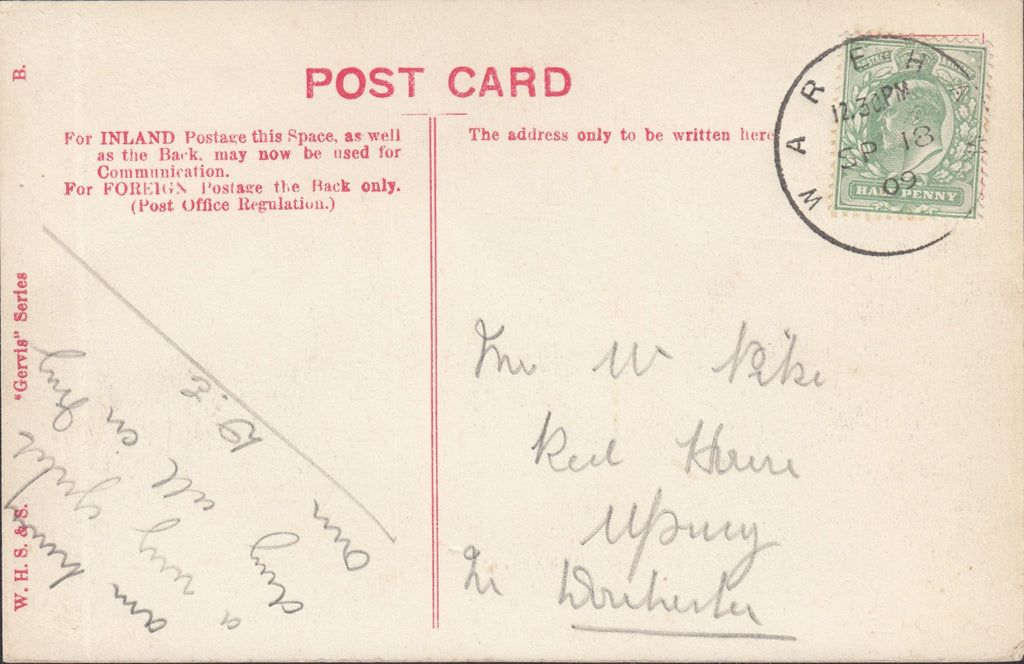 B.
POST CARD
For INLAND Postage this Space, as well
as the Back, may now be used for
Communication.
For FOREIGN Postage the Back only.
(Post Office Regulation.)
The address only to be written here
WAREHAM
12.30PM
SP 18
09
POSTAGE
HALFPENNY
"Gervis" Series
W. H. S. & S.
am having
a very quiet
all on my
D. E.
Mr W Pike
Red House
Upwey
Nr Dorchester